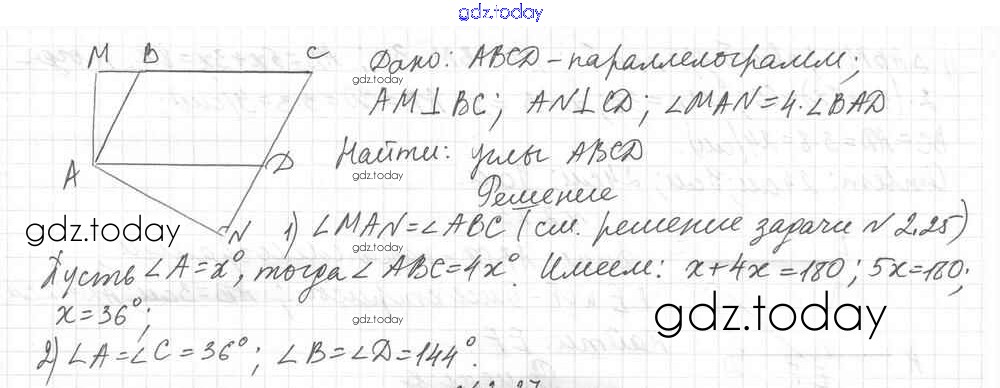 gdz.today
M B C Дано: ABCD - параллелограмм;
gdz.today
AM⊥BC; AN⊥CD; ∠MAN=4·∠BAD
A D Найти: углы ABCD
gdz.today
Решение
gdz.today N 1) ∠MAN=∠ABC (см. решение задачи №2.25)
gdz.today
Пусть ∠A=x°, тогда ∠ABC=4x°. Имеем: x+4x=180; 5x=180;
x=36°; gdz.today gdz.today
2) ∠A=∠C=36°; ∠B=∠D=144°.
gdz.today